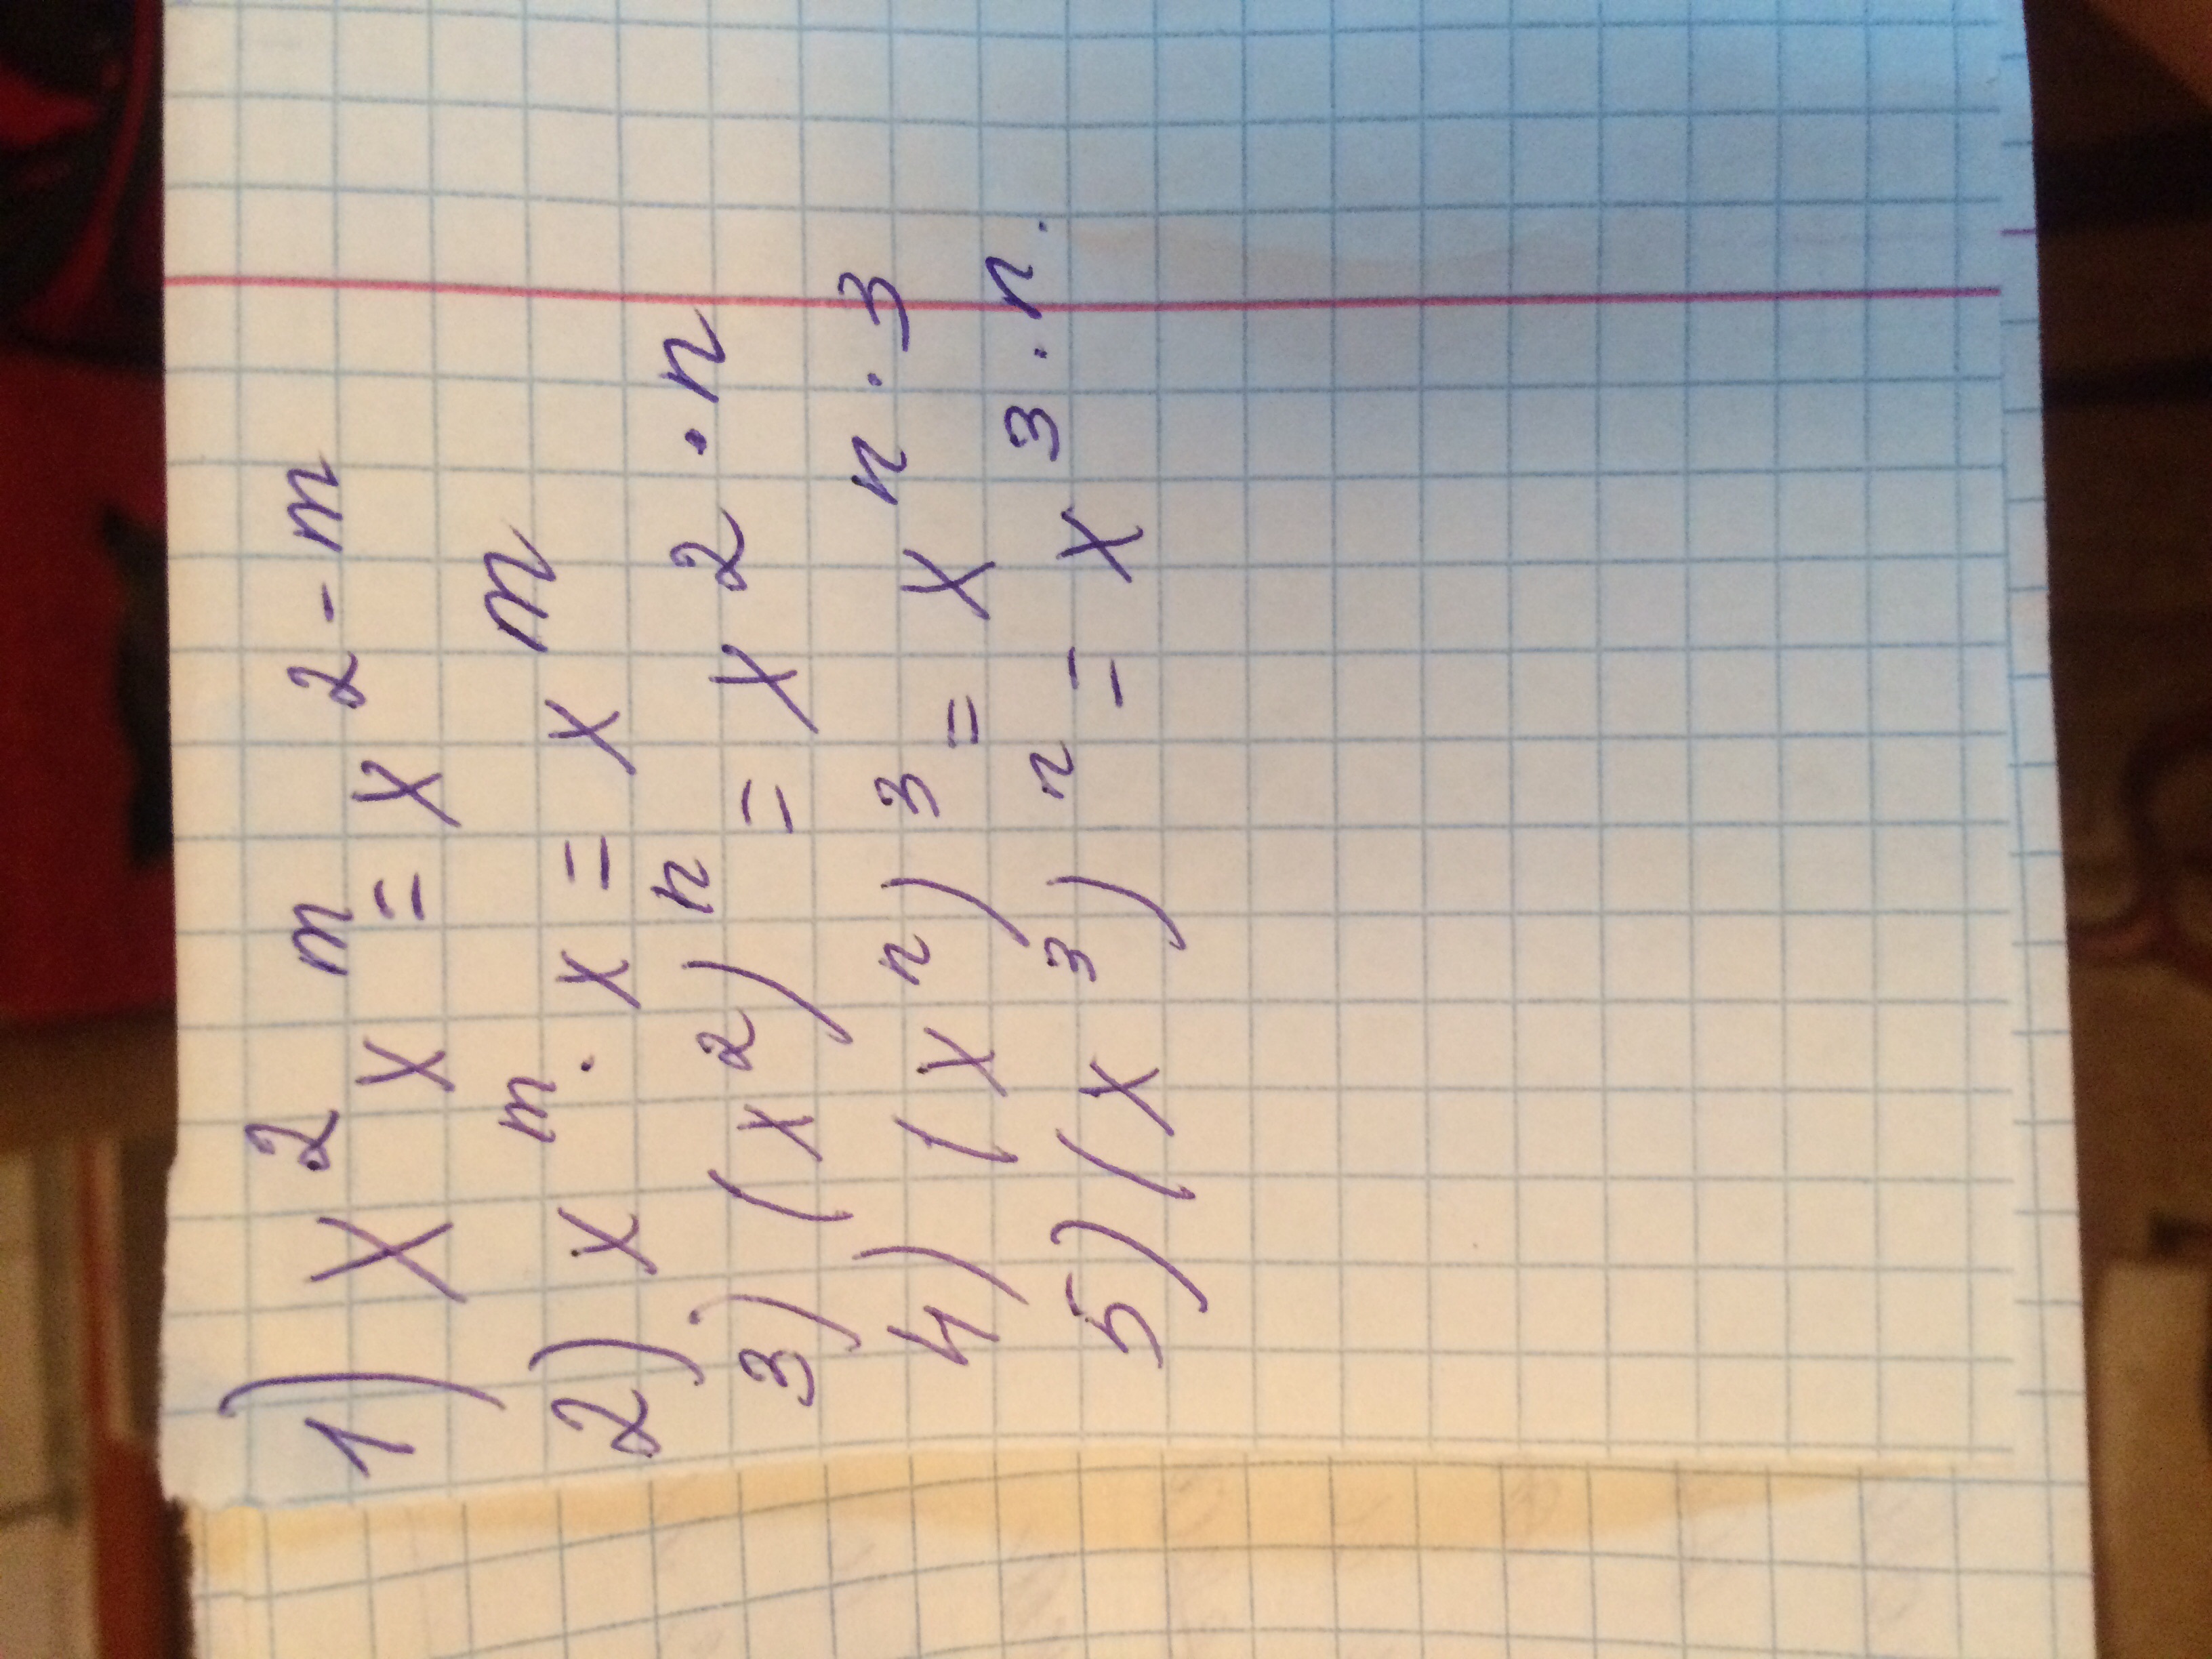 1) x² xᵐ = x²⁻ᵐ
2) xᵐ · x = xᵐ
3) (x²)ⁿ = x²·ⁿ
4) (xⁿ)³ = xⁿ·³
5) (x³)ⁿ = x³·ⁿ.